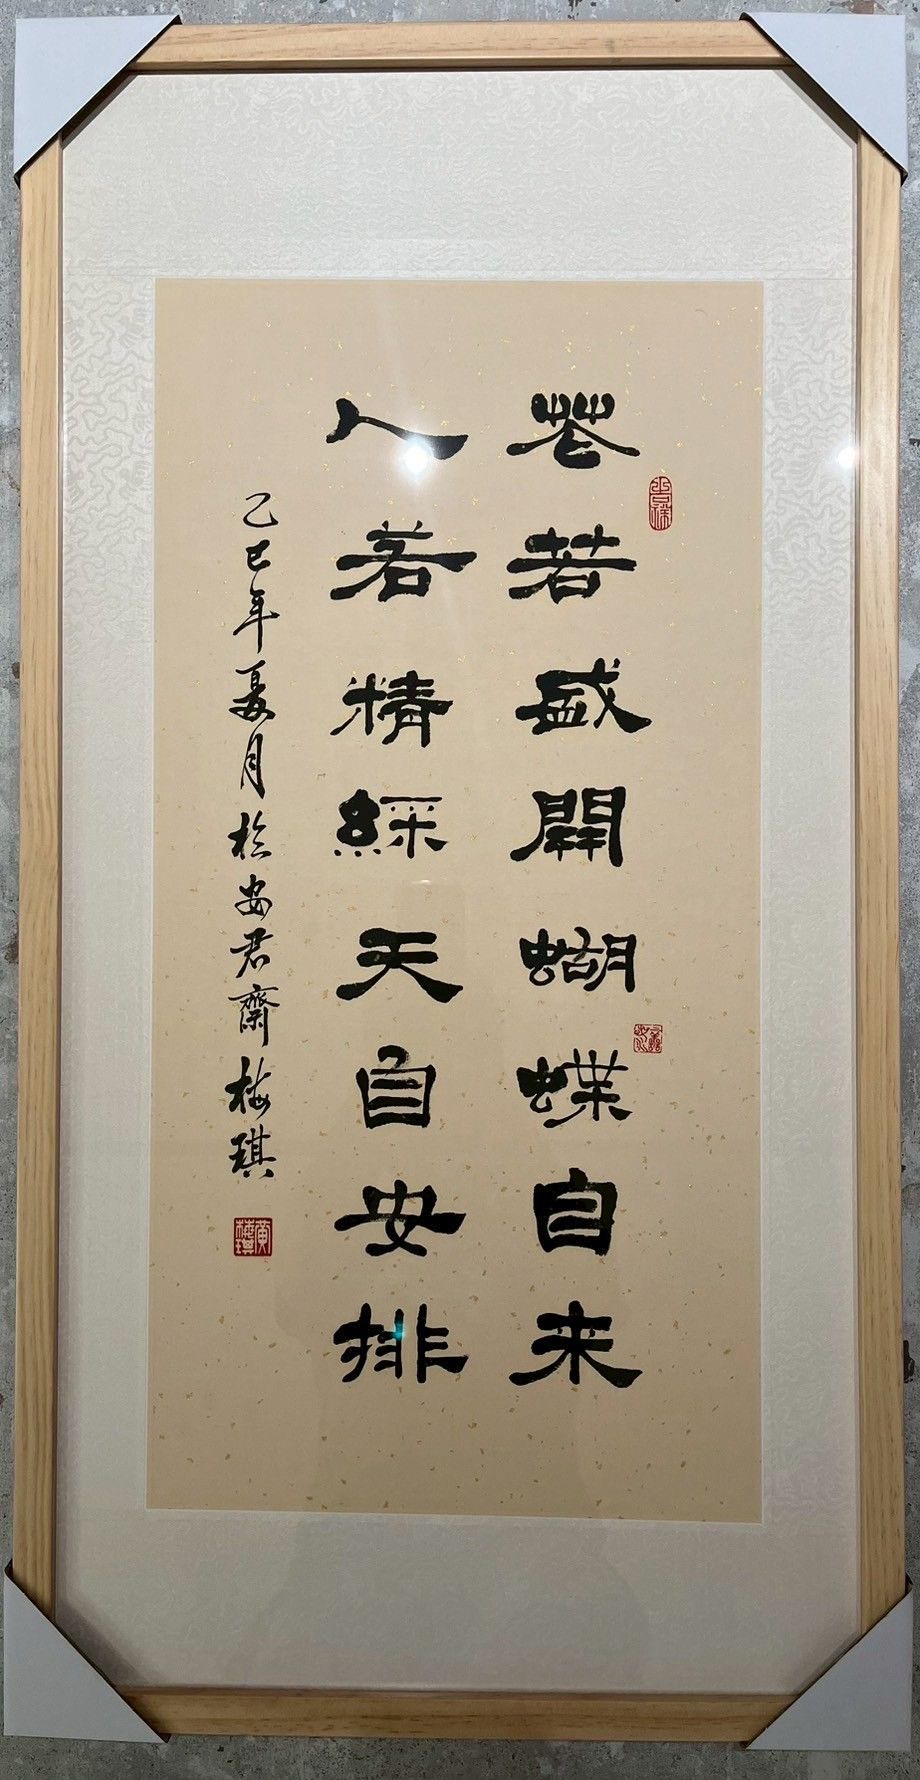 花若盛開蝴蝶自来
人若精綵天自安排
乙巳年夏月於安君齋梅琪
吉祥
黄梅琪